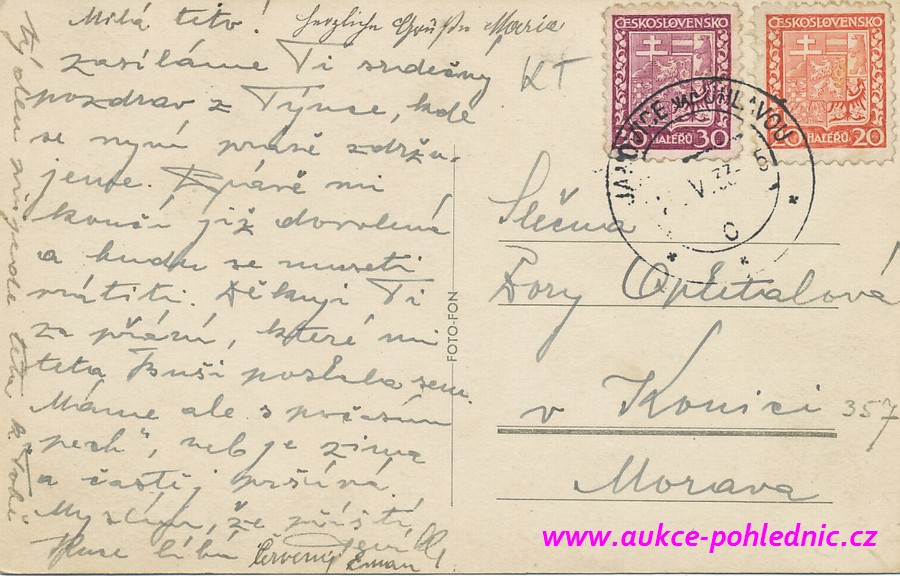 Milá teto!
herzliche Grüße Maria
zasíláme Ti srdečný
pozdrav z Týnce, kde
se nyní právě zdržu-
jeme. Právě mi
končí již dovolená
a budu se museti
vrátiti. Děkuji Ti
za přání, které mi
teta Buši poslala sem.
Máme ale s počasím
"pech", neb je zima
a častěj pršívá.
Myslím, že příští
týden přijede teta k Tobě
Ruce líbá
Červený Eman
KT
ČESKOSLOVENSKO
HALÉŘŮ 30
ČESKOSLOVENSKO
20 HALÉŘŮ 20
JANOVICE NAD ÚHLAVOU
V 33
C
FOTO-FON
Slečna
Dory Opletalová
v Konici
357
Morava
www.aukce-pohlednic.cz